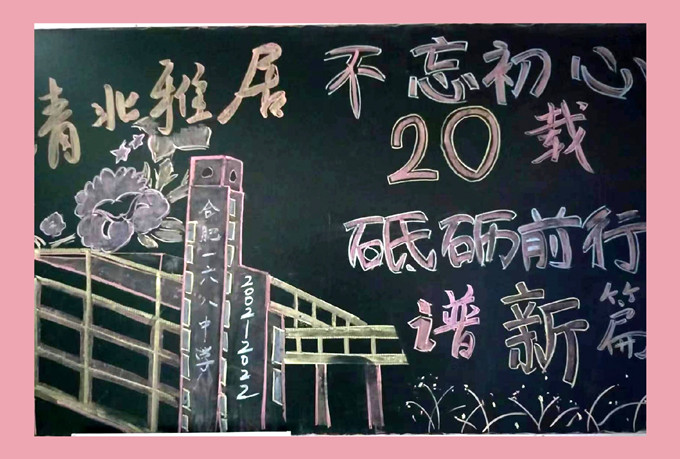 清北雅居
不忘初心
20载
砥砺前行
谱新篇
合肥一六八中学
2002-2022